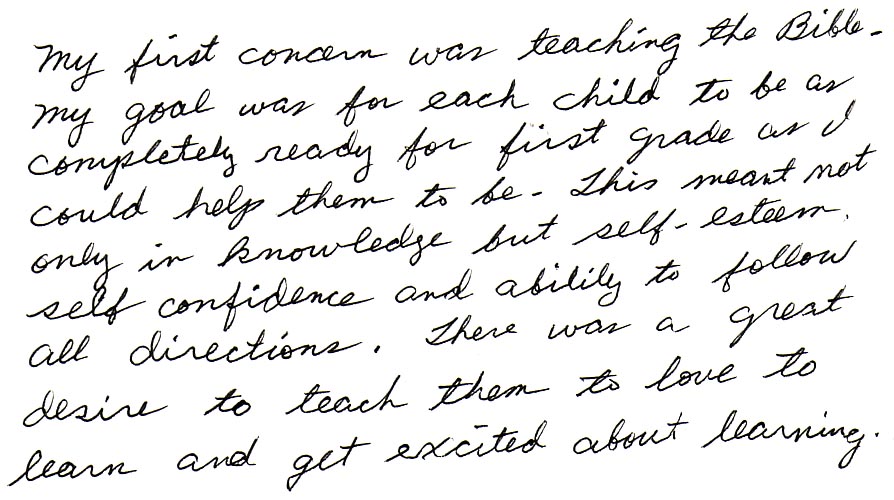 My first concern was teaching the Bible.
My goal was for each child to be as
completely ready for first grade as I
could help them to be. This meant not
only in knowledge but self-esteem,
self confidence and ability to follow
all directions. There was a great
desire to teach them to love to
learn and get excited about learning.